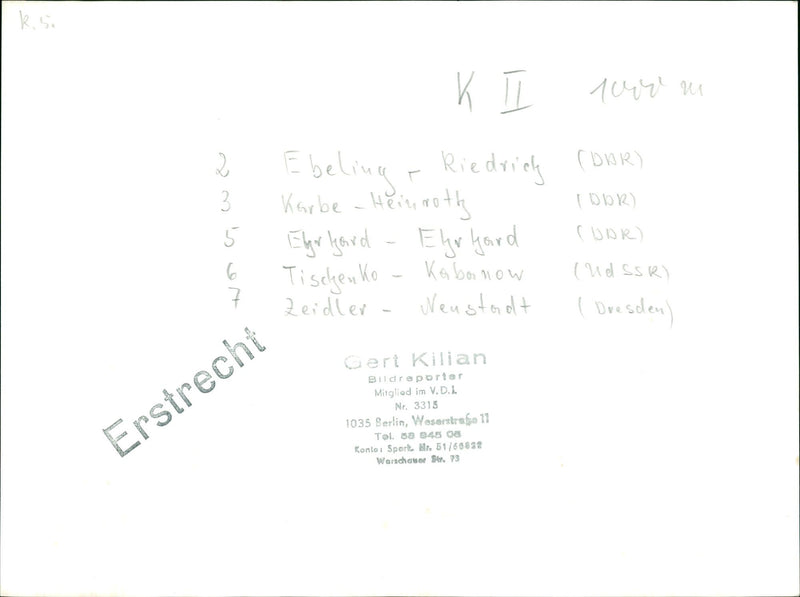 K.S.
K II 1000 m
2 Ebeling - Riedrich (DDR)
3 Karbe - Heinroth (DDR)
5 Ehrhard - Ehrhard (DDR)
6 Tischenko - Kabanow (UdSSR)
7 Zeidler - Neustadt (Dresden)
Erstrecht
Gert Kilian
Bildreporter
Mitglied im V.D.J.
Nr. 3315
1035 Berlin, Weserstraße 11
Tel. 58 845 06
Konto: Spark. Nr. 51/56822
Warschauer Str. 73